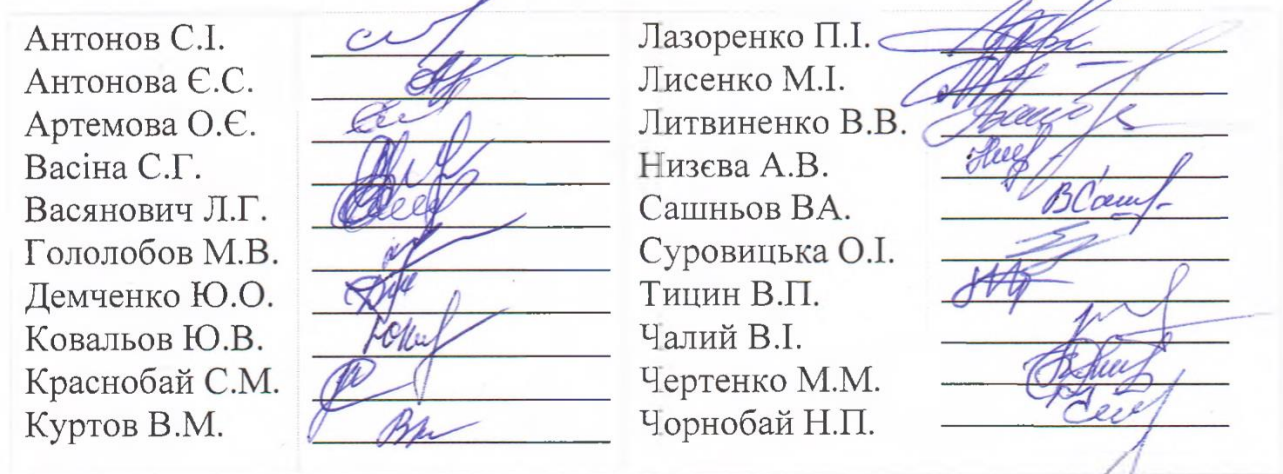 Антонов С.І.
Антонова Є.С.
Артемова О.Є.
Васіна С.Г.
Васянович Л.Г.
Гололобов М.В.
Демченко Ю.О.
Ковальов Ю.В.
Краснобай С.М.
Куртов В.М.
Лазоренко П.І.
Лисенко М.І.
Литвиненко В.В.
Низєва А.В.
Сашньов ВА.
Суровицька О.І.
Тицин В.П.
Чалий В.І.
Чертенко М.М.
Чорнобай Н.П.